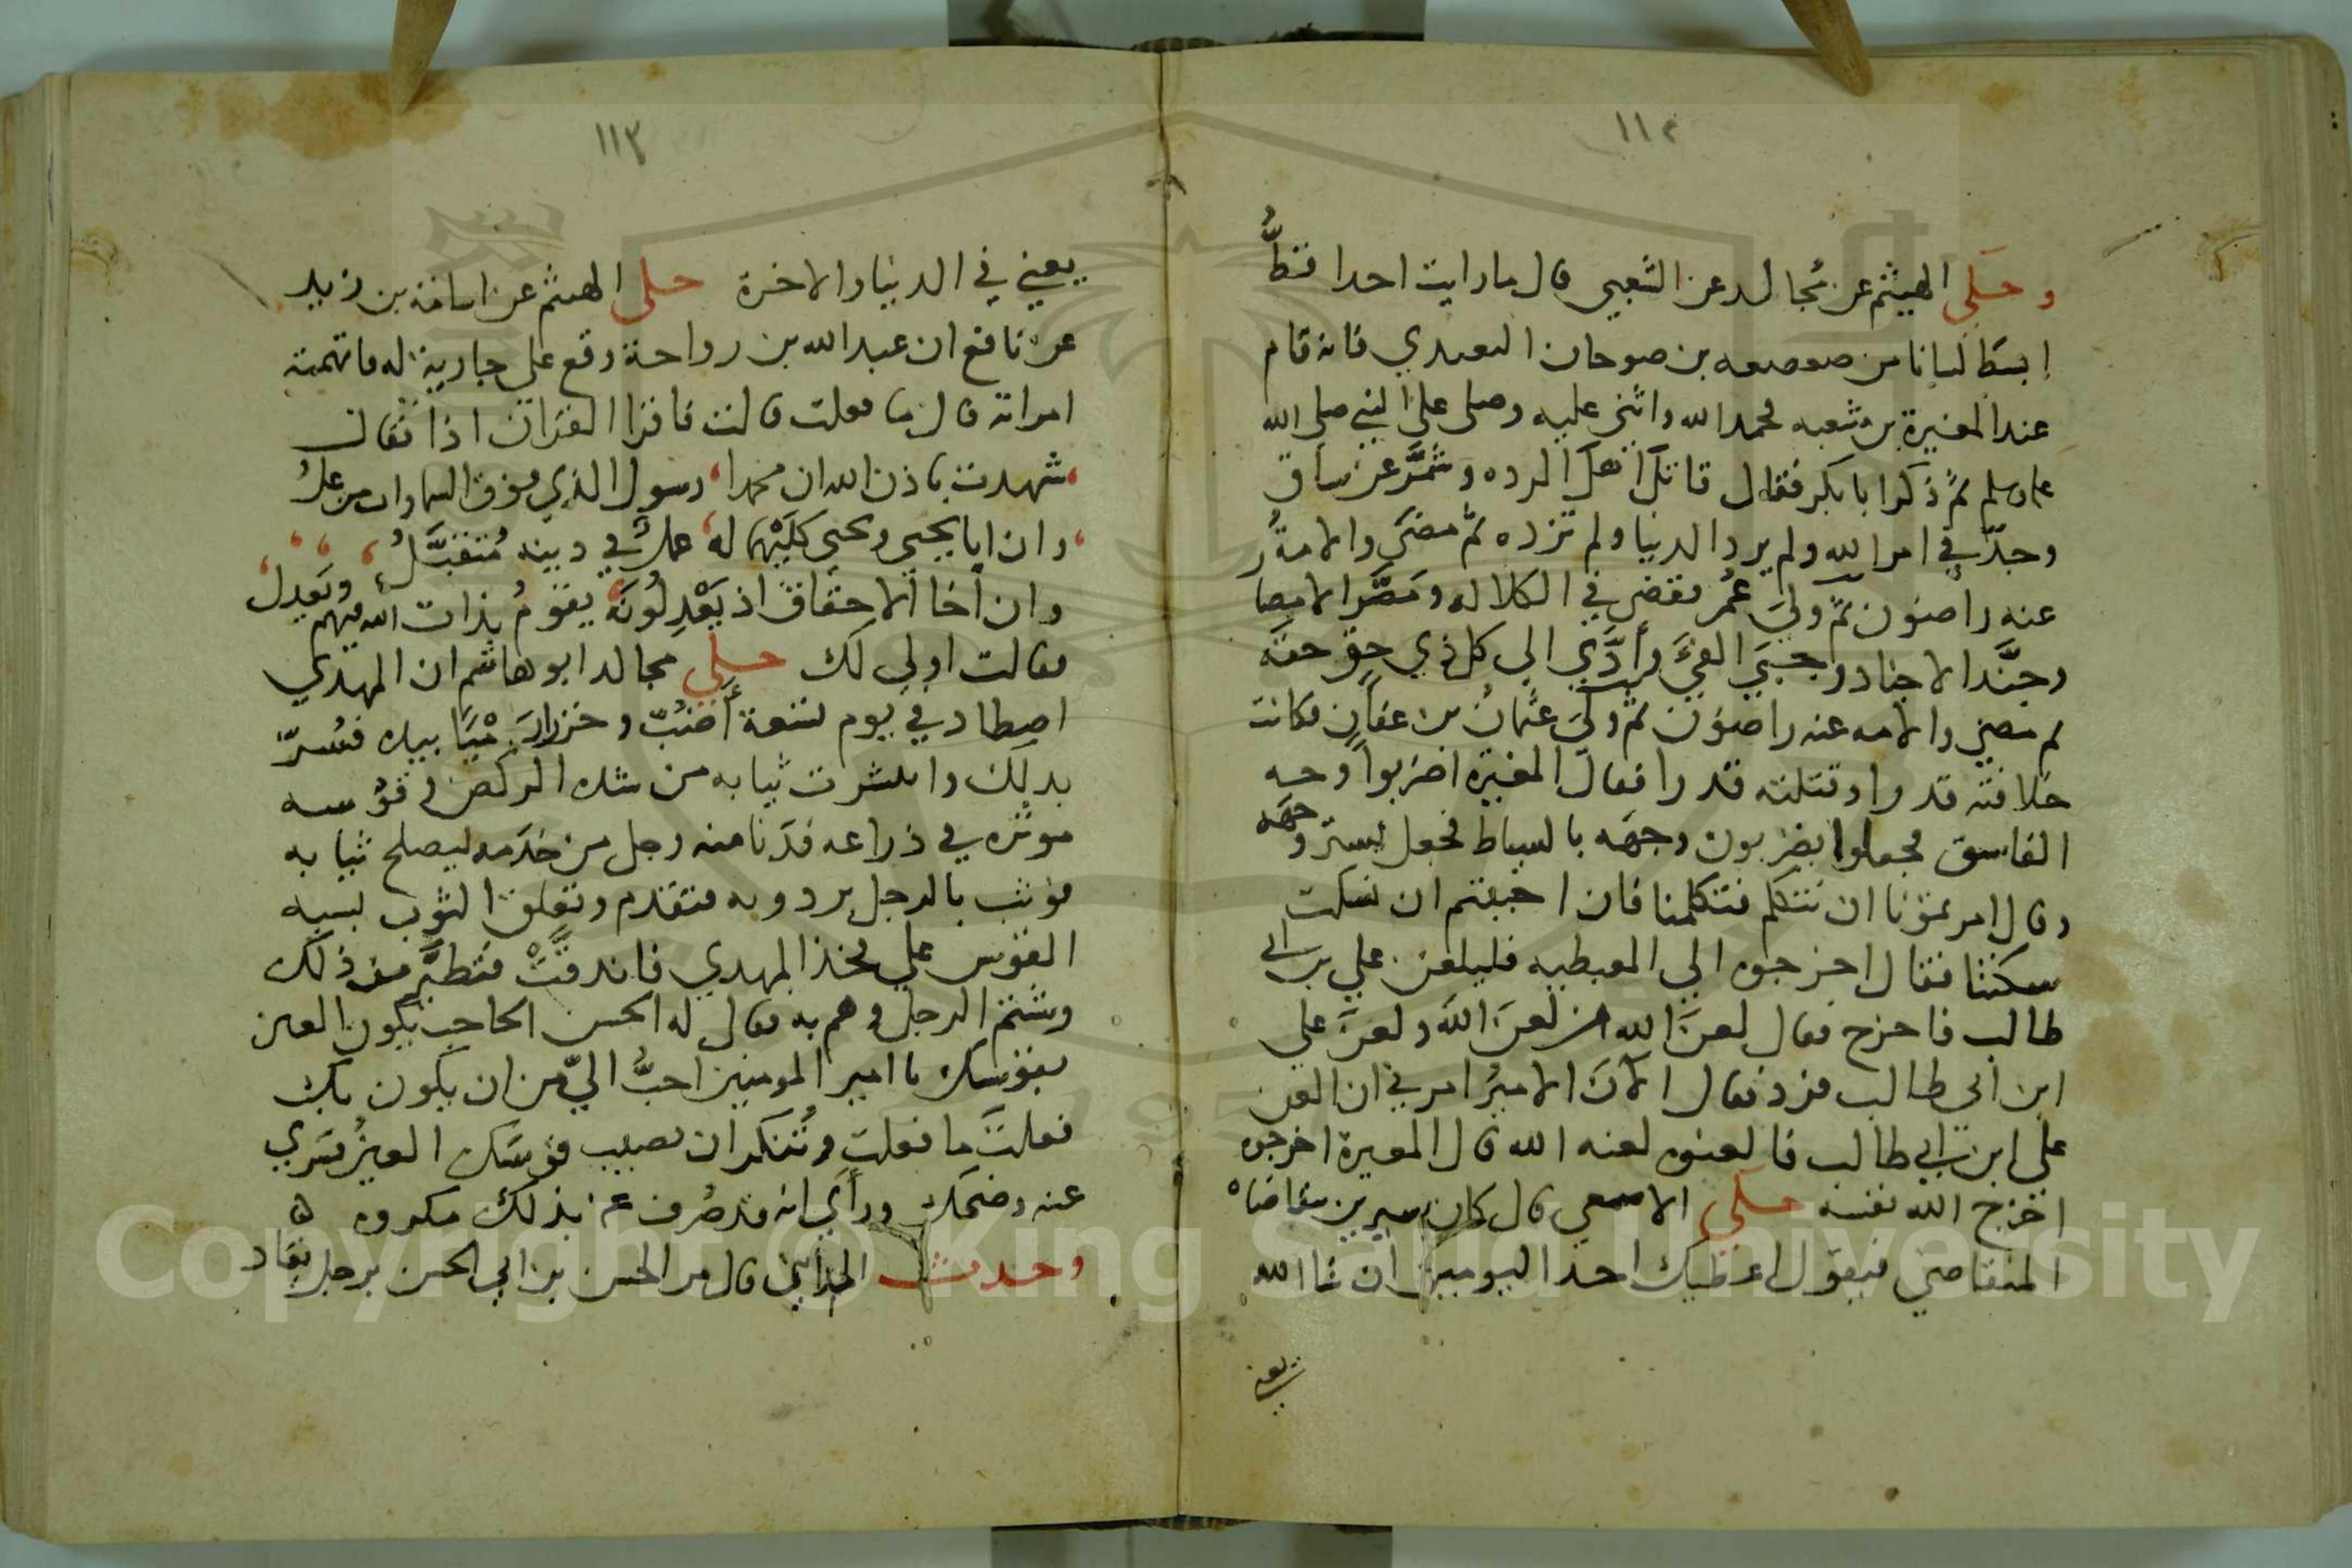 ١١٢
وحكى الهيثم عن مُجالد عن الشعبي قال ما رايت احدا قطُّ
ابسط لسانا من صعصعه بن صوحان العبدي فانه قام
عند المغيرة بن شعبه فحمد الله واثنى عليه وصلى على النبي صلى الله
عليه وسلم ثمّ ذكر ابا بكر فقال قاتل اهل الرده وشمَّر عن ساق
وجدّ في امر الله ولم يرد الدنيا ولم ترده ثمّ مضى والامةُ
عنه راضون ثمّ وليَ عُمر فقضى في الكلاله ومَصَّر الامصار
وجنَّد الاجناد وجبَي الفيَّ وأدَّي الي كل ذي حقٍ حقه
ثم مضي والامه عنه راضون ثم وليَ عثمانُ بن عفان فكانت
خلافته قدرا وقتلته قدرا فقال المغيرة اضربوا وجه
الفاسق فجعلوا يضربون وجهه بالسياط فجعل يستر وجهه
وقال امرتمونا ان نتكلم فتكلمنا فان احببتم ان نسكت
سكتنا فقال اخرجوه الي المصطبه فليلعن علي بن ابي
طالب فاخرج فقال لعنَ الله من لعنَ اللهَ ولعنَ علي
ابن ابي طالب فرد فقال الآنَ الاميرُ امرني ان العن
علي ابن ابي طالب فالعنوه لعنه الله قال المغيرة اخرجوه
اخرج الله نفسه حكي الاصمعي قال كان سيرين يتقاضاهُ
المتقاضي فيقول اعطيك احد اليومين ان شا الله
يعني
١١٣
يعني في الدنيا والاخرة حكى الهيثم عن اسامة بن زيد
عن نافع ان عبد الله بن رواحة وقع على جارية له فاتهمته
امراته قال ما فعلت قالت فاقرا القران اذا فقال
شهدت باذن الله ان محمدا رسول الذي فوق السماوات من علُ
وان ابا يحيى ويحيى كلَيْهما له عملٌ في دينه مُتقبَّلُ
وان أخا الاحقاف اذ يَعْدِلُونَه يقومُ بذات الله فيهم ويَعدلُ
فقالت اولي لك حكى مجالد ابو هاشم ان المهدي
اصطاد في يوم تسعة أضبُبّ وخزازَ مْيَا بيده فسُرّ
بذلك وانتشرت ثيابه من شده الركض وقوسه
موتره في ذراعه فدَنا منه رجل من خدَمه ليصلح ثيابه
فوثب بالرجل برذونه فتقدم وتعلق الثوب بسيه
القوس على فخذ المهدي فاندقَّتْ فتطيَّر من ذلك
وشتم الرجل وهم به فقال له الحسن الحاجب يكون العين
بقوسك يا امير المومنين احبُّ اليّ من ان يكون بك
فعلتَ ما فعلتَ وتُنكر ان تصيب قوسَك العينُ فسَري
عنه وضحك ورأي انه قد صُرف عنه بذلك مكروه ه
وحدث المدايني قال مر الحسن بن ابي الحسن برجل يقاد
Copyright © King Saud University